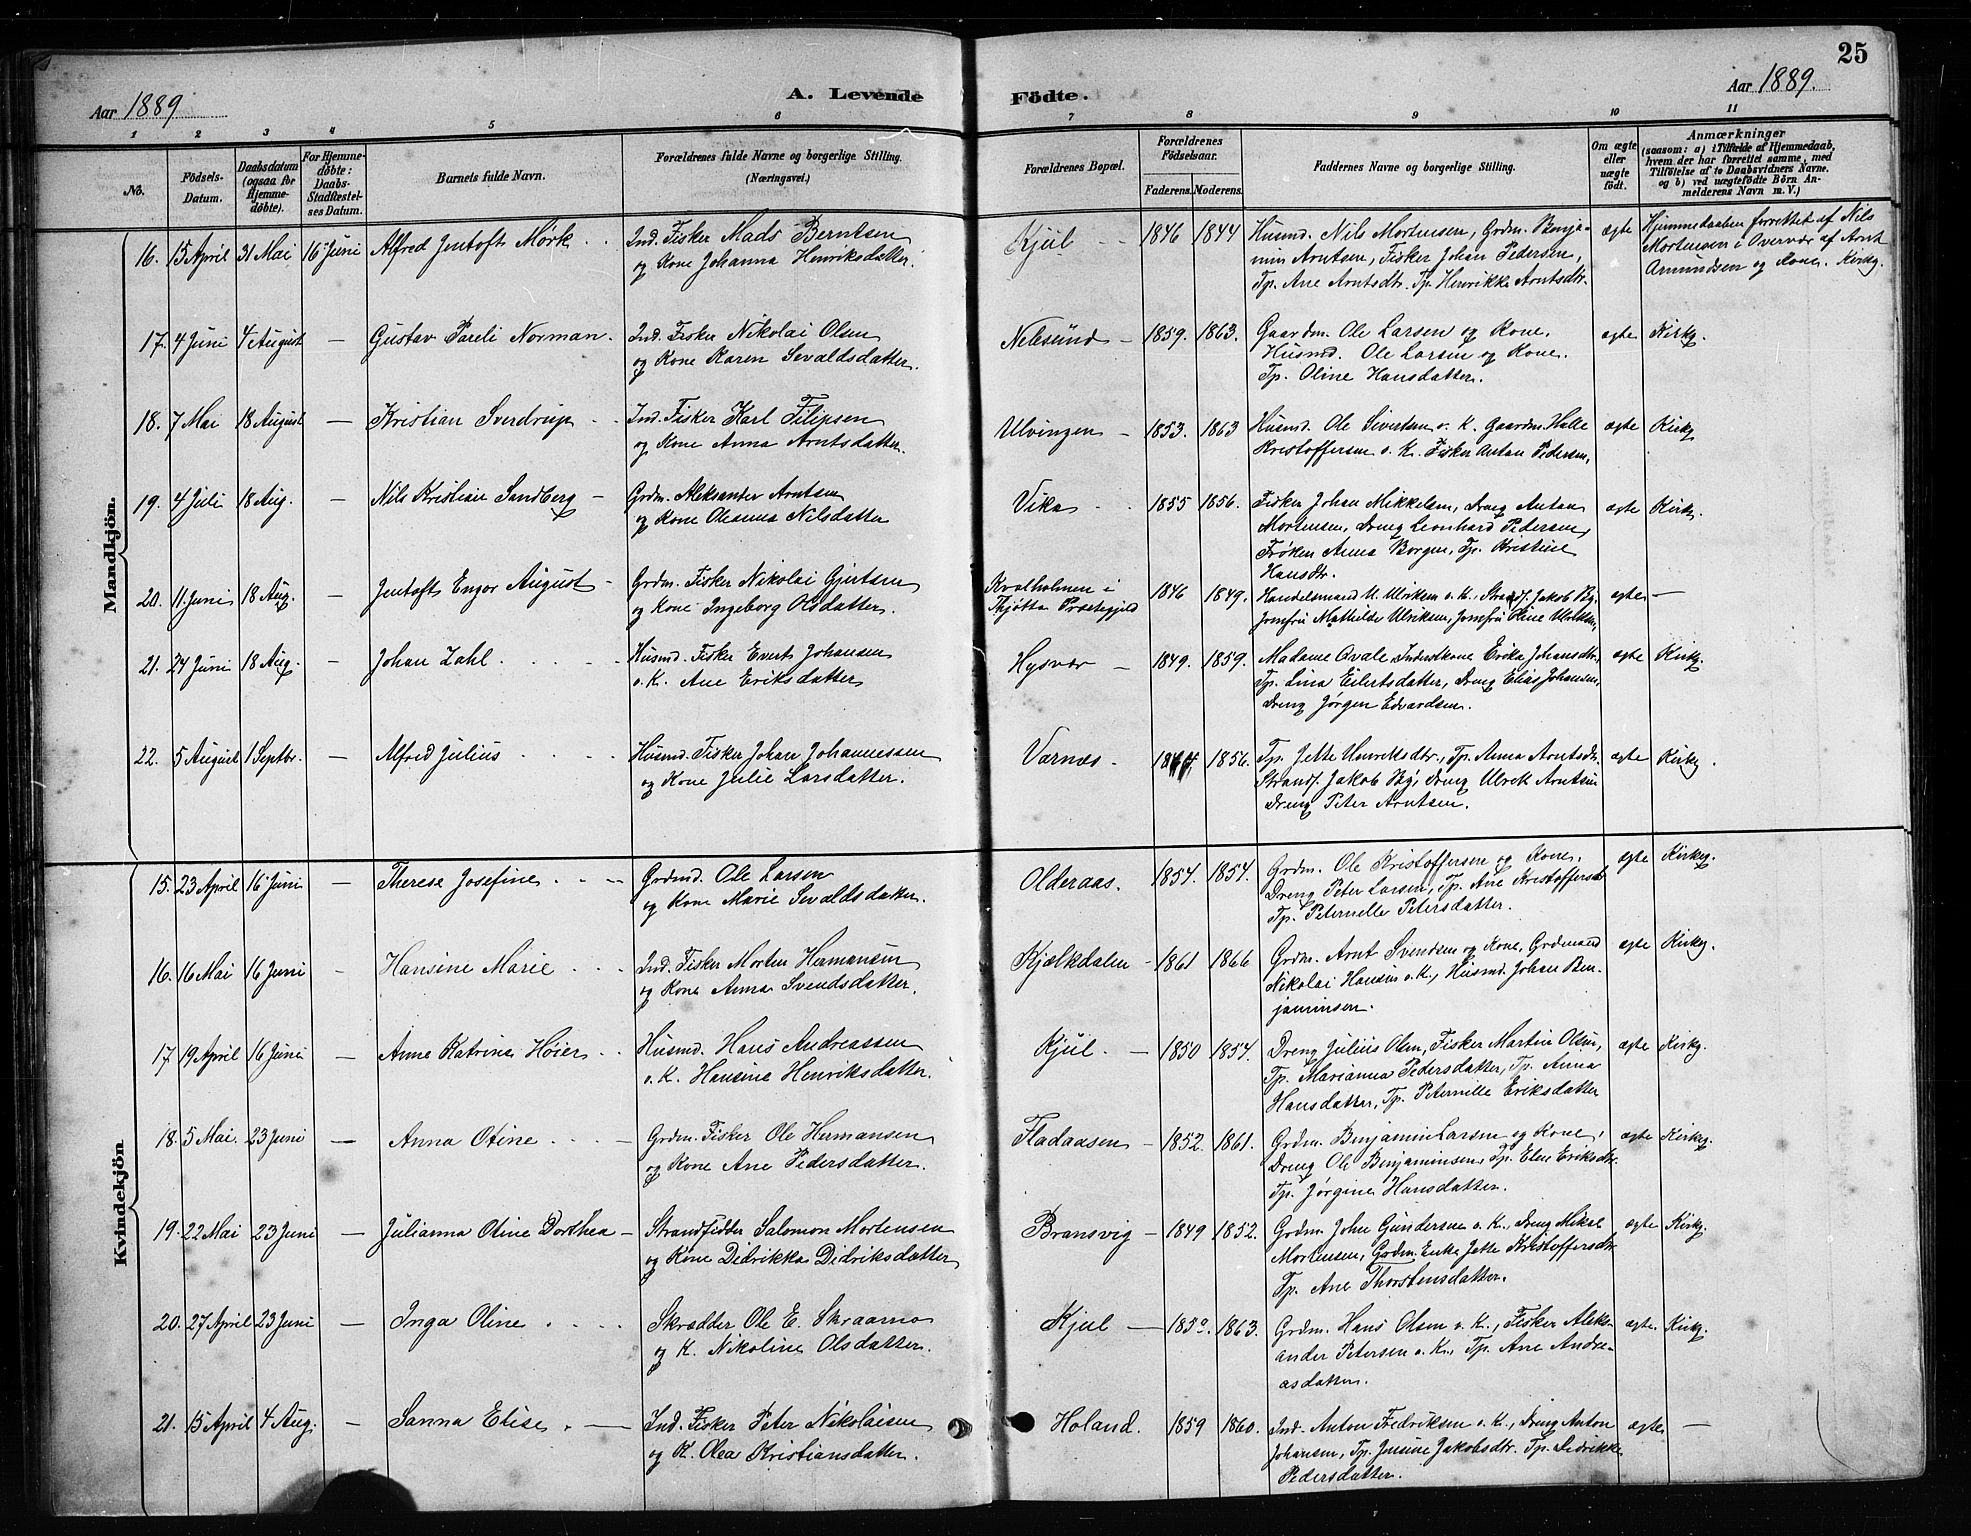 25
Aar 1889
A. Levende Födte.
Aar 1889.
1 2 3 4 5 6 7 8 9 10 11
No.
Födsels-Datum.
Daabsdatum (ogsaa for Hjemme-döbte).
For Hjemme-döbte: Daabs-Stadfæstel-ses Datum.
Barnets fulde Navn.
Forældrenes fulde Navne og borgerlige Stilling. (Næringsvei.)
Forældrenes Bopæl.
Forældrenes Födselsaar.
Faderens. Moderens.
Faddernes Navne og borgerlige Stilling.
Om ægte eller uægte födt.
Anmærkninger
(saasom: a) i Tilfælde af Hjemmedaab,
hvem der har forrettet samme, med
Tilföielse af to Daabsvidners Navne.
og b) ved uægtefödte Börn An-
melderens Navn m. V.)
Mandkjön.
16. 15 April 31 Mai 16 Juni Alfred Jentoft Mørk. Ind. Fisker Mads Berntsen Kjul 1846 1844 Husmd. Nils Mortensen, Grdm. Benja- ægte Hjemmedaaben forrettet af Nils
og Kone Johanna Henriksdatter. min Arntsen, Fisker Johan Pedersen, Mortensen i Overvær af Arnt
Tp. Ane Arntsdtr. Tp. Henrikke Arntsdtr. Amundsen og Kone. Kirkg.
17. 4 Juni 4 August – Gustav Pareli Norman. Ind. Fisker Nikolai Olsen Nelesund – 1859. 1863. Gaardm. Ole Larsen og Kone. ægte Kirkg.
og Kone Karen Sevaldsdatter. Husmd. Ole Larsen og Kone.
Tp. Oline Hansdatter.
18. 7 Mai 18 August – Kristian Sverdrup Ind. Fisker Karl Filipsen Ulvingen – 1853. 1863 Husmd. Ole Sivertsen o. K. Gaardm. Halle ægte Kirkg
og Kone Anna Arntsdatter. Kristoffersen o. K. Fisker Antan Pedersen,
19. 4 Juli 18 Aug. – Nils Kristian Sandberg – Grdm. Aleksander Arntsen Vika 1855 1856. Fisker Johan Mikkelsen, Dreng Antan ægte Kirkg.
og Kone Oleanna Nilsdatter Mortensen, Dreng Leonhard Pedersen,
Frøken Anna Borgen, Tp. Kristine
Hansdtr.
20. 11. Juni 18 Aug. – Jentoft Engor August – Grdm. Fisker Nikolai Gjertsen Kvalholmen i 1846 1849. Handelsmand U. Ulriksen o. K., Strandf. Jakob By, ægte –
og Kone Ingeborg Olsdatter. Thjøtta Præstegjeld Jomfru Mathilde Ulriksen, Jomfru Oline Ulriksen,
21. 24 Juni 18 Aug. – Johan Zahl Husmd. Fisker Evert Johansen Hysvær – 1849. 1859. Madame Qvale, Inderstkone Erika Johansdtr. ægte Kirkg.
o. K. Ane Eriksdatter Tp. Lina Eilertsdatter, Dreng Elias Johansen,
Dreng Jørgen Edvardsen.
22. 5 August 1 Septbr. – Alfred Julius Husmd. Fisker Johan Johannessen Varnes. 1856. Tp. Jette Henriksdtr., Tp. Anna Arntsdtr. ægte Kirkg.
og Kone Julie Larsdatter. Strandf. Jakob By, Dreng Ulrik Arntsen
Dreng Peter Arntsen.
Kvindekjön
15. 23 April 16 Juni – Therese Josefine Grdmd. Ole Larsen Olderaas. 1854. 1854. Grdm. Ole Kristoffersen og Kone. ægte Kirkeg.
og Kone Marie Sevaldsdatter. Dreng Peter Larsen, Tp. Ane Kristoffersd.
Tp. Peternelle Petersdatter.
16. 16 Mai 16 Juni – Hansine Marie Ind. Fisker Morten Hermansen Kjælkdalen – 1861 1866 Grdm. Arnt Svendsen og Kone, Grdmand ægte Kirkeg.
og Kone Anna Svendsdatter. Nikolai Hansen o. K., Husmd. Johan Ben-
jaminsen.
17 19 April 16 Juni – Anne Katrine Høier Husmd. Hans Andreassen Kjul – 1850 1854. Dreng Julius Olsen, Fisker Martin Olsen, ægte Kirkg.
o. K. Hansine Henriksdatter. Tp. Marianna Pedersdatter, Tp. Anna
Hansdatter, Tp. Peternille Eriksdatter
18. 5 Mai. 23 Juni – Anna Otine Grdm. Fisker Ole Hermansen Fladaasen – 1852. 1861. Grdm. Benjamin Larsen og Kone, ægte Kirkeg.
og Kone Ane Pedersdatter. Dreng Ole Benjaminsen, Tp. Elen Eriksdtr.
Tp. Jørgine Hansdatter.
19. 22 Mai 23 Juni – Julianna Otine Dorthea – Strandsidder Salomon Mortensen Bransvig – 1849 1852. Grdm. John Gundersen o. K., Dreng Mikal ægte Kirkg.
og Kone Didrikka Didriksdatter Mortensen, Grdm. Enke Jette Kristoffersdtr.
Tp. Ane Thorstensdatter.
20. 27 April 23 Juni – Inga Oline Skrædder Ole E. Skraamo Kjul – 1850. 1863. Grdm. Hans Olsen o. K., Fisker Alek- ægte. Kirkg.
og K. Nikoline Olsdatter. ander Petersen o. K., Tp. Ane Andre-
asdatter.
21. 15 April 4 Aug. – Sanna Elise. – Ind. Fisker Peter Nikolaisen Holand. 1859 1860. Ind. Anton Fredriksen o. K., Dreng Anton ægte –
og K. Olea Kristiansdatter. Johansen, Tp. Jensine Jakobsdtr. Tp. Didrikke
Pedersdatter.